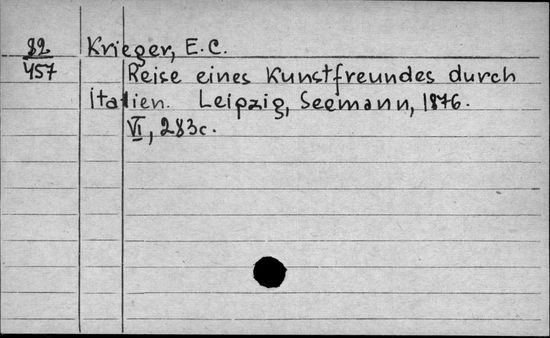 82
457
Krieger, E.C.
Reise eines Kunstfreundes durch
Italien. Leipzig, Seemann, 1876.
VI, 283c.